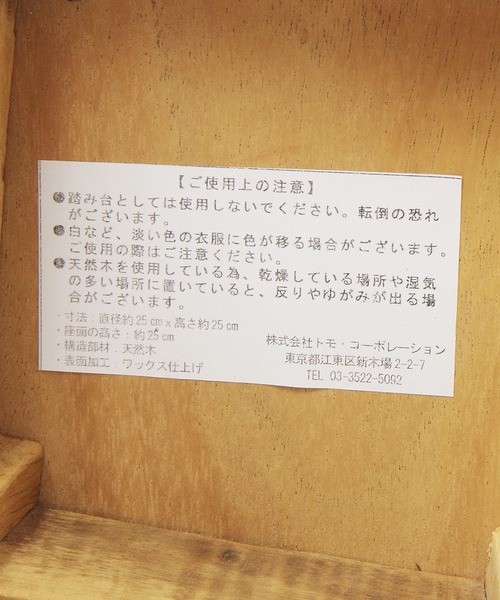 【ご使用上の注意】
●踏み台としては使用しないでください。転倒の恐れ
がございます。
●白など、淡い色の衣服に色が移る場合がございます。
ご使用の際はご注意ください。
●天然木を使用している為、乾燥している場所や湿気
の多い場所に置いていると、反りやゆがみが出る場
合がございます。
・寸法：直径約25cm×高さ約25cm
・座面の高さ：約25cm
・構造部材：天然木
・表面加工：ワックス仕上げ
株式会社トモ・コーポレーション
東京都江東区新木場2-2-7
TEL 03-3522-5092